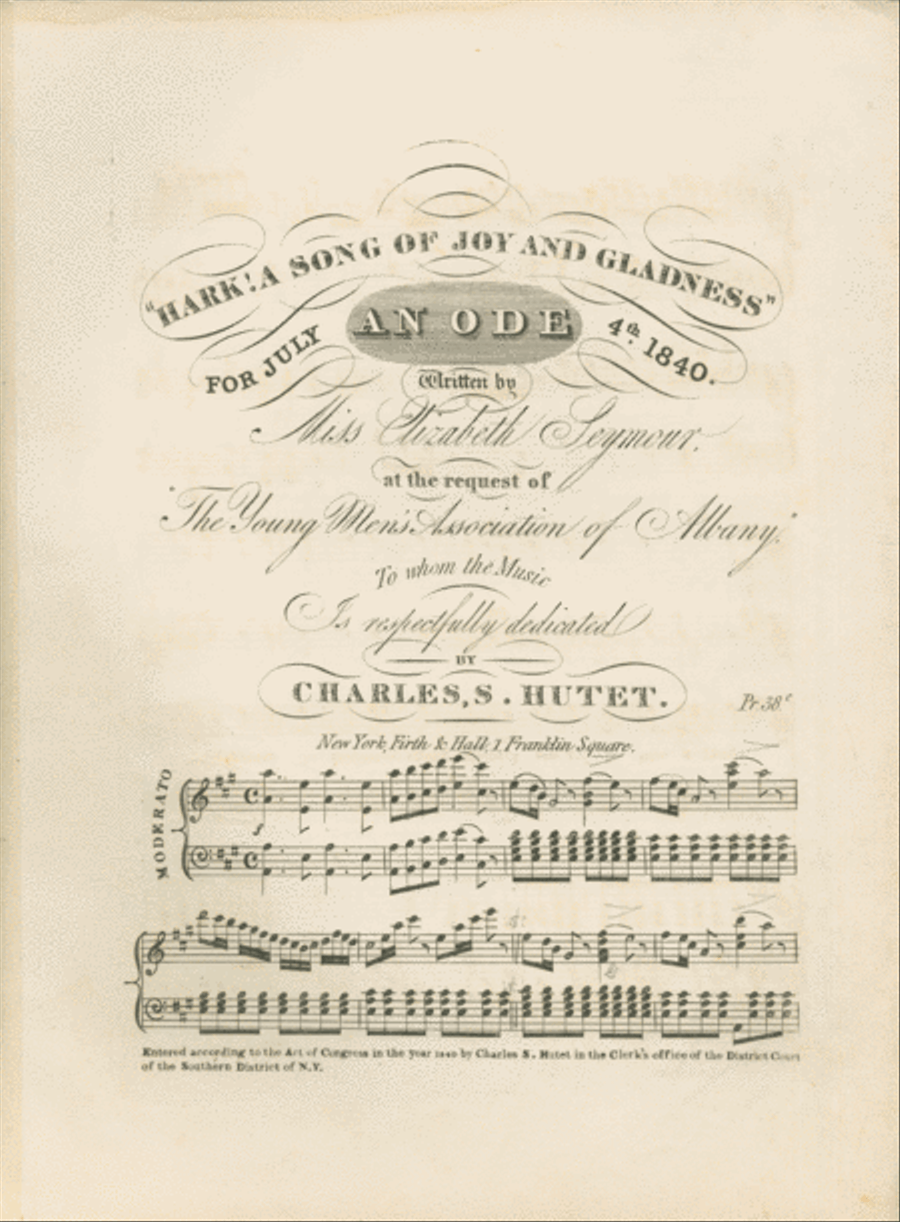 "HARK! A SONG OF JOY AND GLADNESS"
AN ODE
FOR JULY 4th. 1840.
Written by
Miss Elizabeth Seymour.
at the request of
"The Young Men's Association of Albany."
To whom the Music
Is respectfully dedicated
BY
CHARLES, S. HUTET.
Pr. 38.c
New York, Firth & Hall, 1 Franklin Square.
MODERATO
Entered according to the Act of Congress in the year 1840 by Charles S. Hutet in the Clerk's office of the District Court
of the Southern District of N.Y.